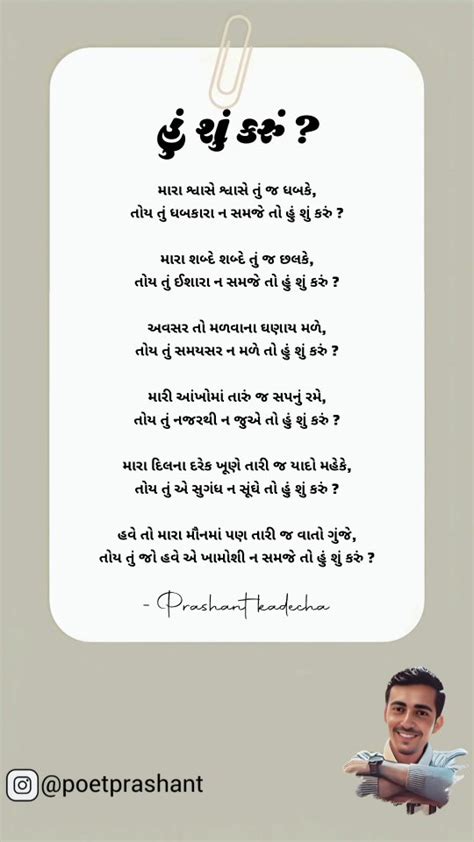 હું શું કરું ?
મારા શ્વાસે શ્વાસે તું જ ધબકે,
તોય તું ધબકારા ન સમજે તો હું શું કરું ?
મારા શબ્દે શબ્દે તું જ છલકે,
તોય તું ઈશારા ન સમજે તો હું શું કરું ?
અવસર તો મળવાના ઘણાય મળે,
તોય તું સમયસર ન મળે તો હું શું કરું ?
મારી આંખોમાં તારું જ સપનું રમે,
તોય તું નજરથી ન જુએ તો હું શું કરું ?
મારા દિલના દરેક ખૂણે તારી જ યાદો મહેકે,
તોય તું એ સુગંધ ન સૂંઘે તો હું શું કરું ?
હવે તો મારા મૌનમાં પણ તારી જ વાતો ગુંજે,
તોય તું જો હવે એ ખામોશી ન સમજે તો હું શું કરું ?
- Prashant kadecha
@poetprashant